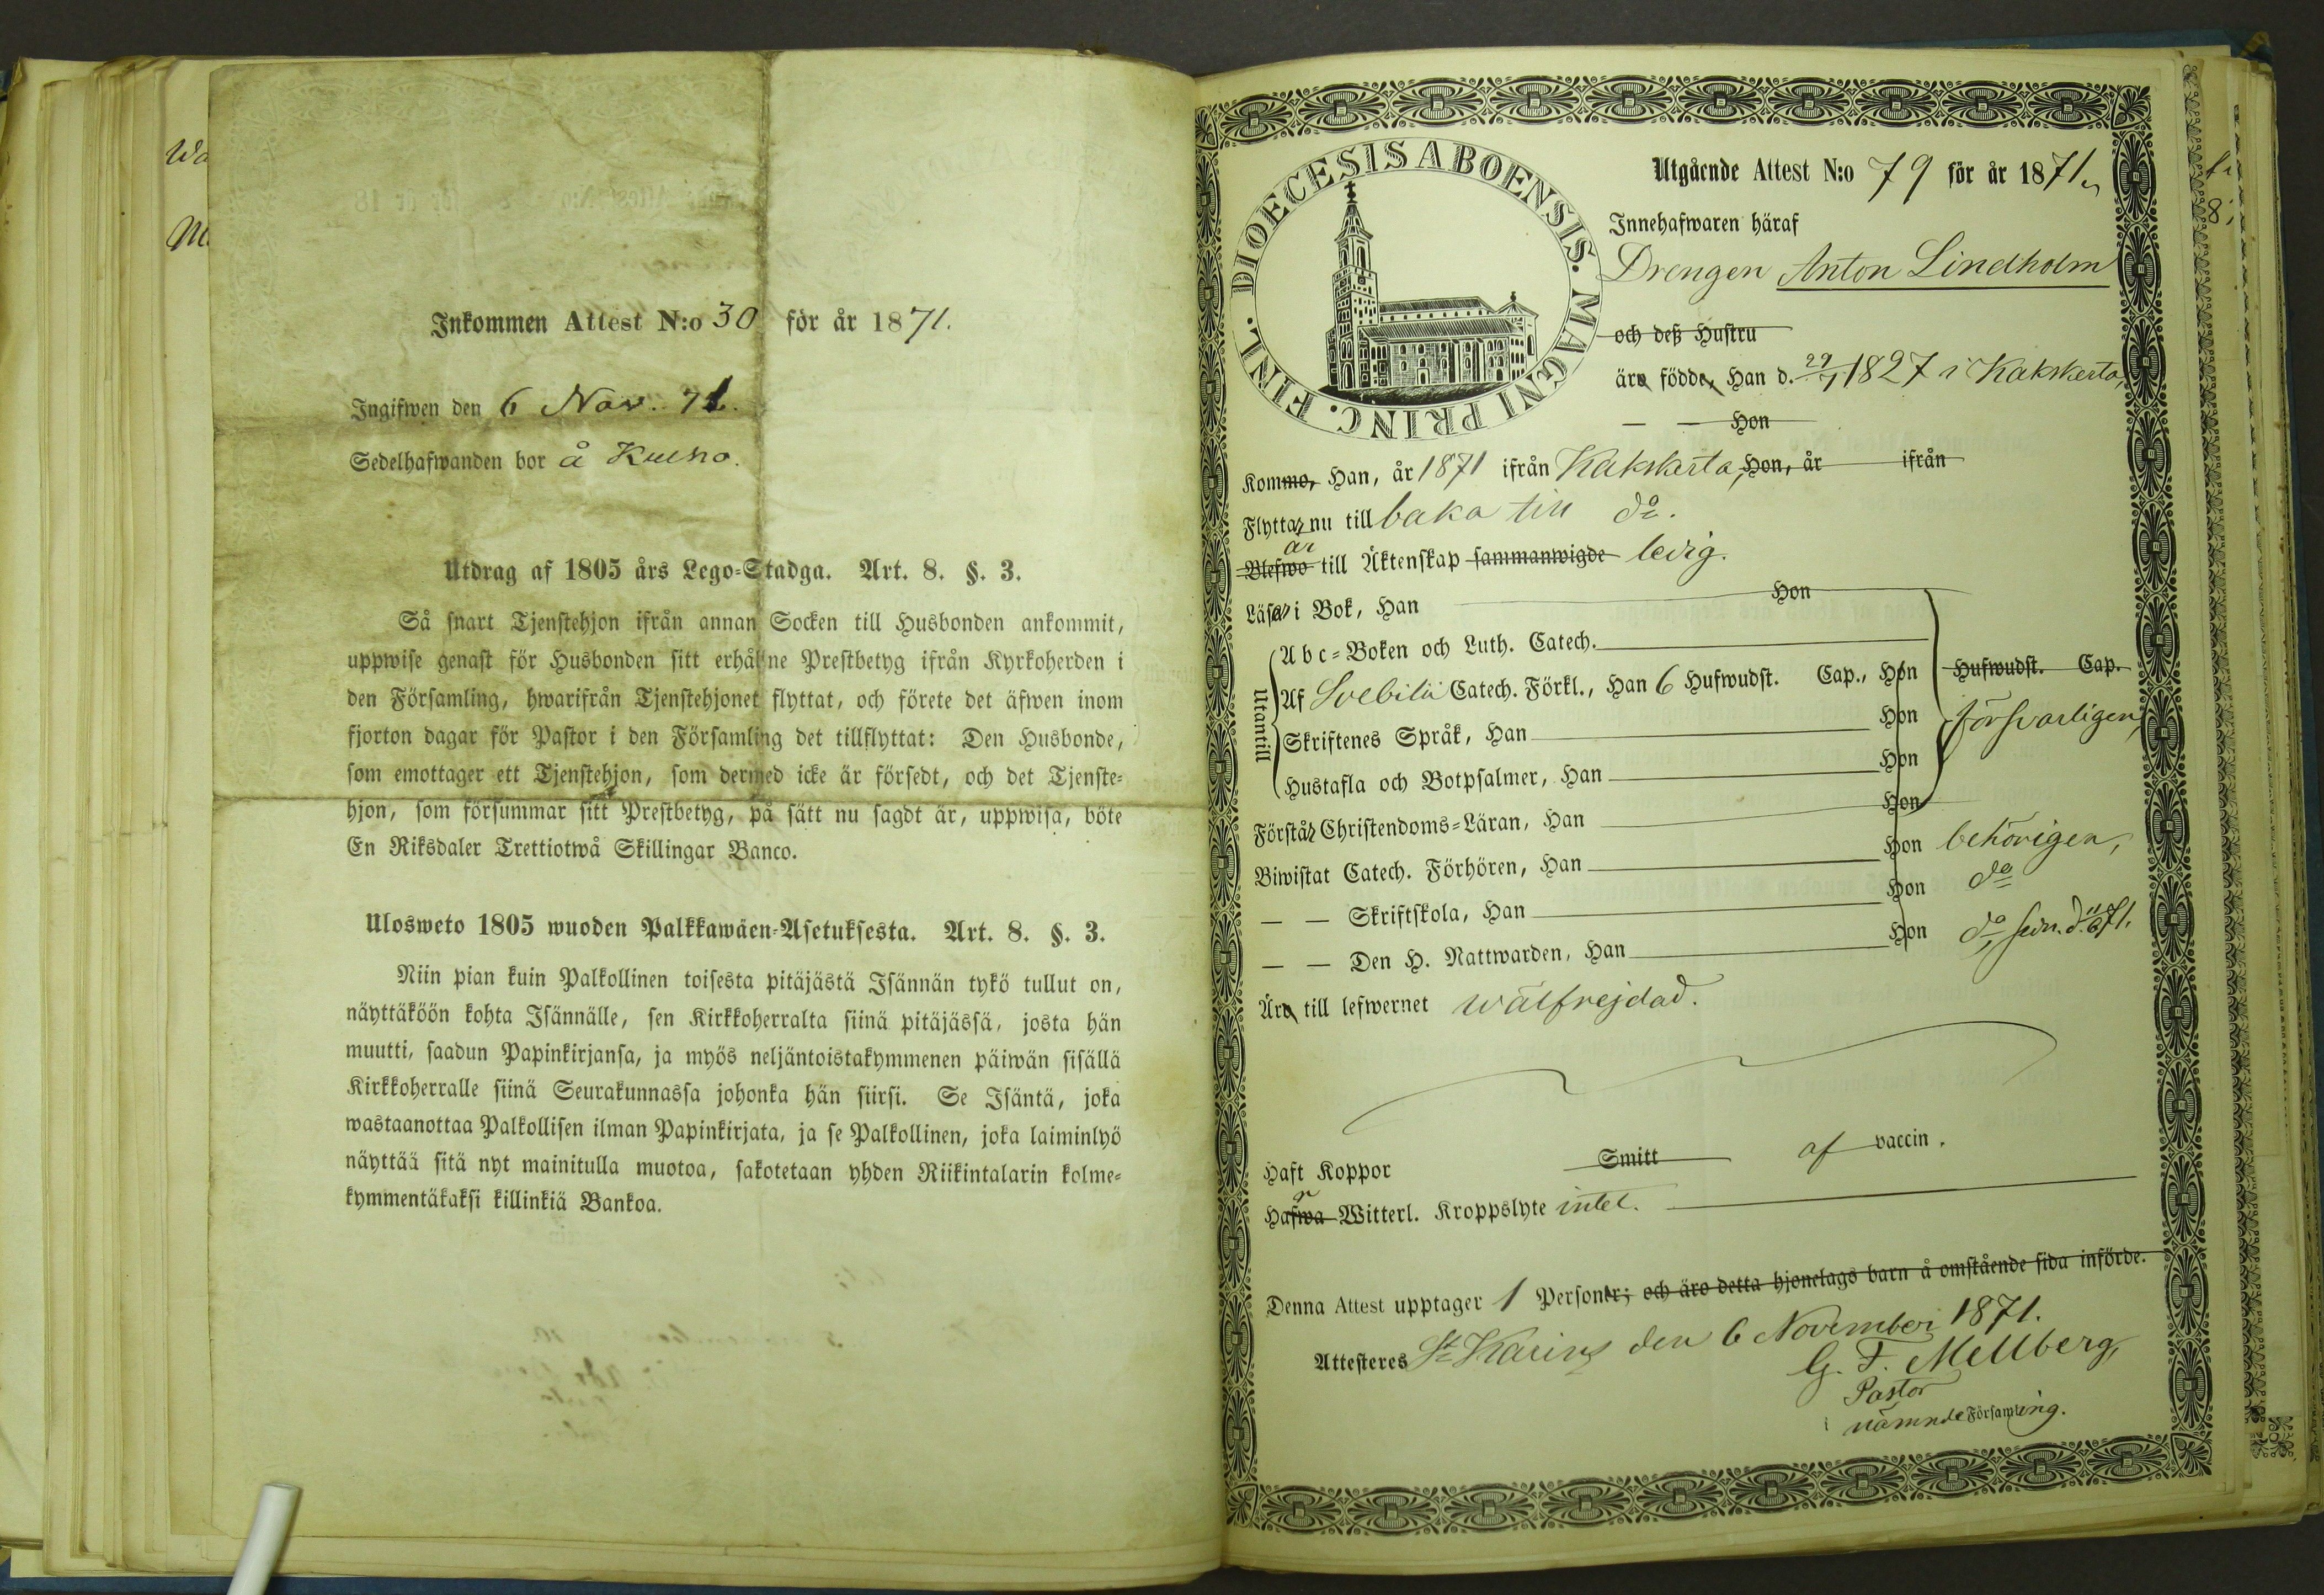 Wa
M
Inkommen Attest N:o 30 för år 1871.
Ingifwen den 6 Nov. 71.
Sedelhafwanden bor å Kulho.
Utdrag af 1805 års Lego-Stadga. Art. 8. §. 3.
Så snart Tjenstehjon ifrån annan Socken till Husbonden ankommit,
uppwise genast för Husbonden sitt erhållne Prestbetyg ifrån Kyrkoherden i
den Församling, hwarifrån Tjenstehjonet flyttat, och förete det äfwen inom
fjorton dagar för Pastor i den Församling det tillflyttat: Den Husbonde,
som emottager ett Tjenstehjon, som dermed icke är försedt, och det Tjenste-
hjon, som försummar sitt Prestbetyg, på sätt nu sagdt är, uppwisa, böte
En Riksdaler Trettiotwå Skillingar Banco.
Ulosweto 1805 wuoden Palkkawäen-Asetuksesta. Art. 8. §. 3.
Niin pian kuin Palkollinen toisesta pitäjästä Isännän tykö tullut on,
näyttäköön kohta Isännälle, sen Kirkkoherralta siinä pitäjässä, josta hän
muutti, saadun Papinkirjansa, ja myös neljäntoistakymmenen päiwän sisällä
Kirkkoherralle siinä Seurakunnassa johonka hän siirsi. Se Isäntä, joka
wastaanottaa Palkollisen ilman Papinkirjata, ja se Palkollinen, joka laiminlyö
näyttää sitä nyt mainitulla muotoa, sakotetaan yhden Riikintalarin kolme-
kymmentäkaksi killinkiä Bankoa.
DIOECESIS ABOENSIS. MAGNI PRINC. FINL.
Utgående Attest N:o 79 för år 1871,
Innehafwaren häraf
Drengen Anton Lindholm
och deß Hustru
äro födde, Han d. 29/7 1827 i Kakskerta,
— — Hon
Kommo, Han, år 1871 ifrån Kakskerta, Hon, år ifrån
Flyttar nu till baka till do.
är
Blefwo till Äktenskap sammanwigde ledig.
Läsa i Bok, Han Hon
Utantill
Abc-Boken och Luth. Catech.
Af Svebilii Catech. Förkl., Han 6 Hufwudst. Cap., Hon Hufwudst. Cap.
Skriftenes Språk, Han Hon försvarligen,
Hustafla och Botpsalmer, Han Hon
Förstår Christendoms-Läran, Han Hon
Biwistat Catech. Förhören, Han Hon behörigen,
— — Skriftskola, Han Hon do
— — Den H. Nattwarden, Han Hon do, sedn. d. 11/6 71.
Äro till lefwernet wälfrejdad.
Haft Koppor Smitt af vaccin.
Hafwa Witterl. Kroppslyte intet.
Denna Attest upptager 1 Personer; och äro detta hjonelags barn å omstående sida införde.
Attesteres St Karins den 6 November 1871.
G. F. Mellberg,
Pastor
i nämnde Församling.